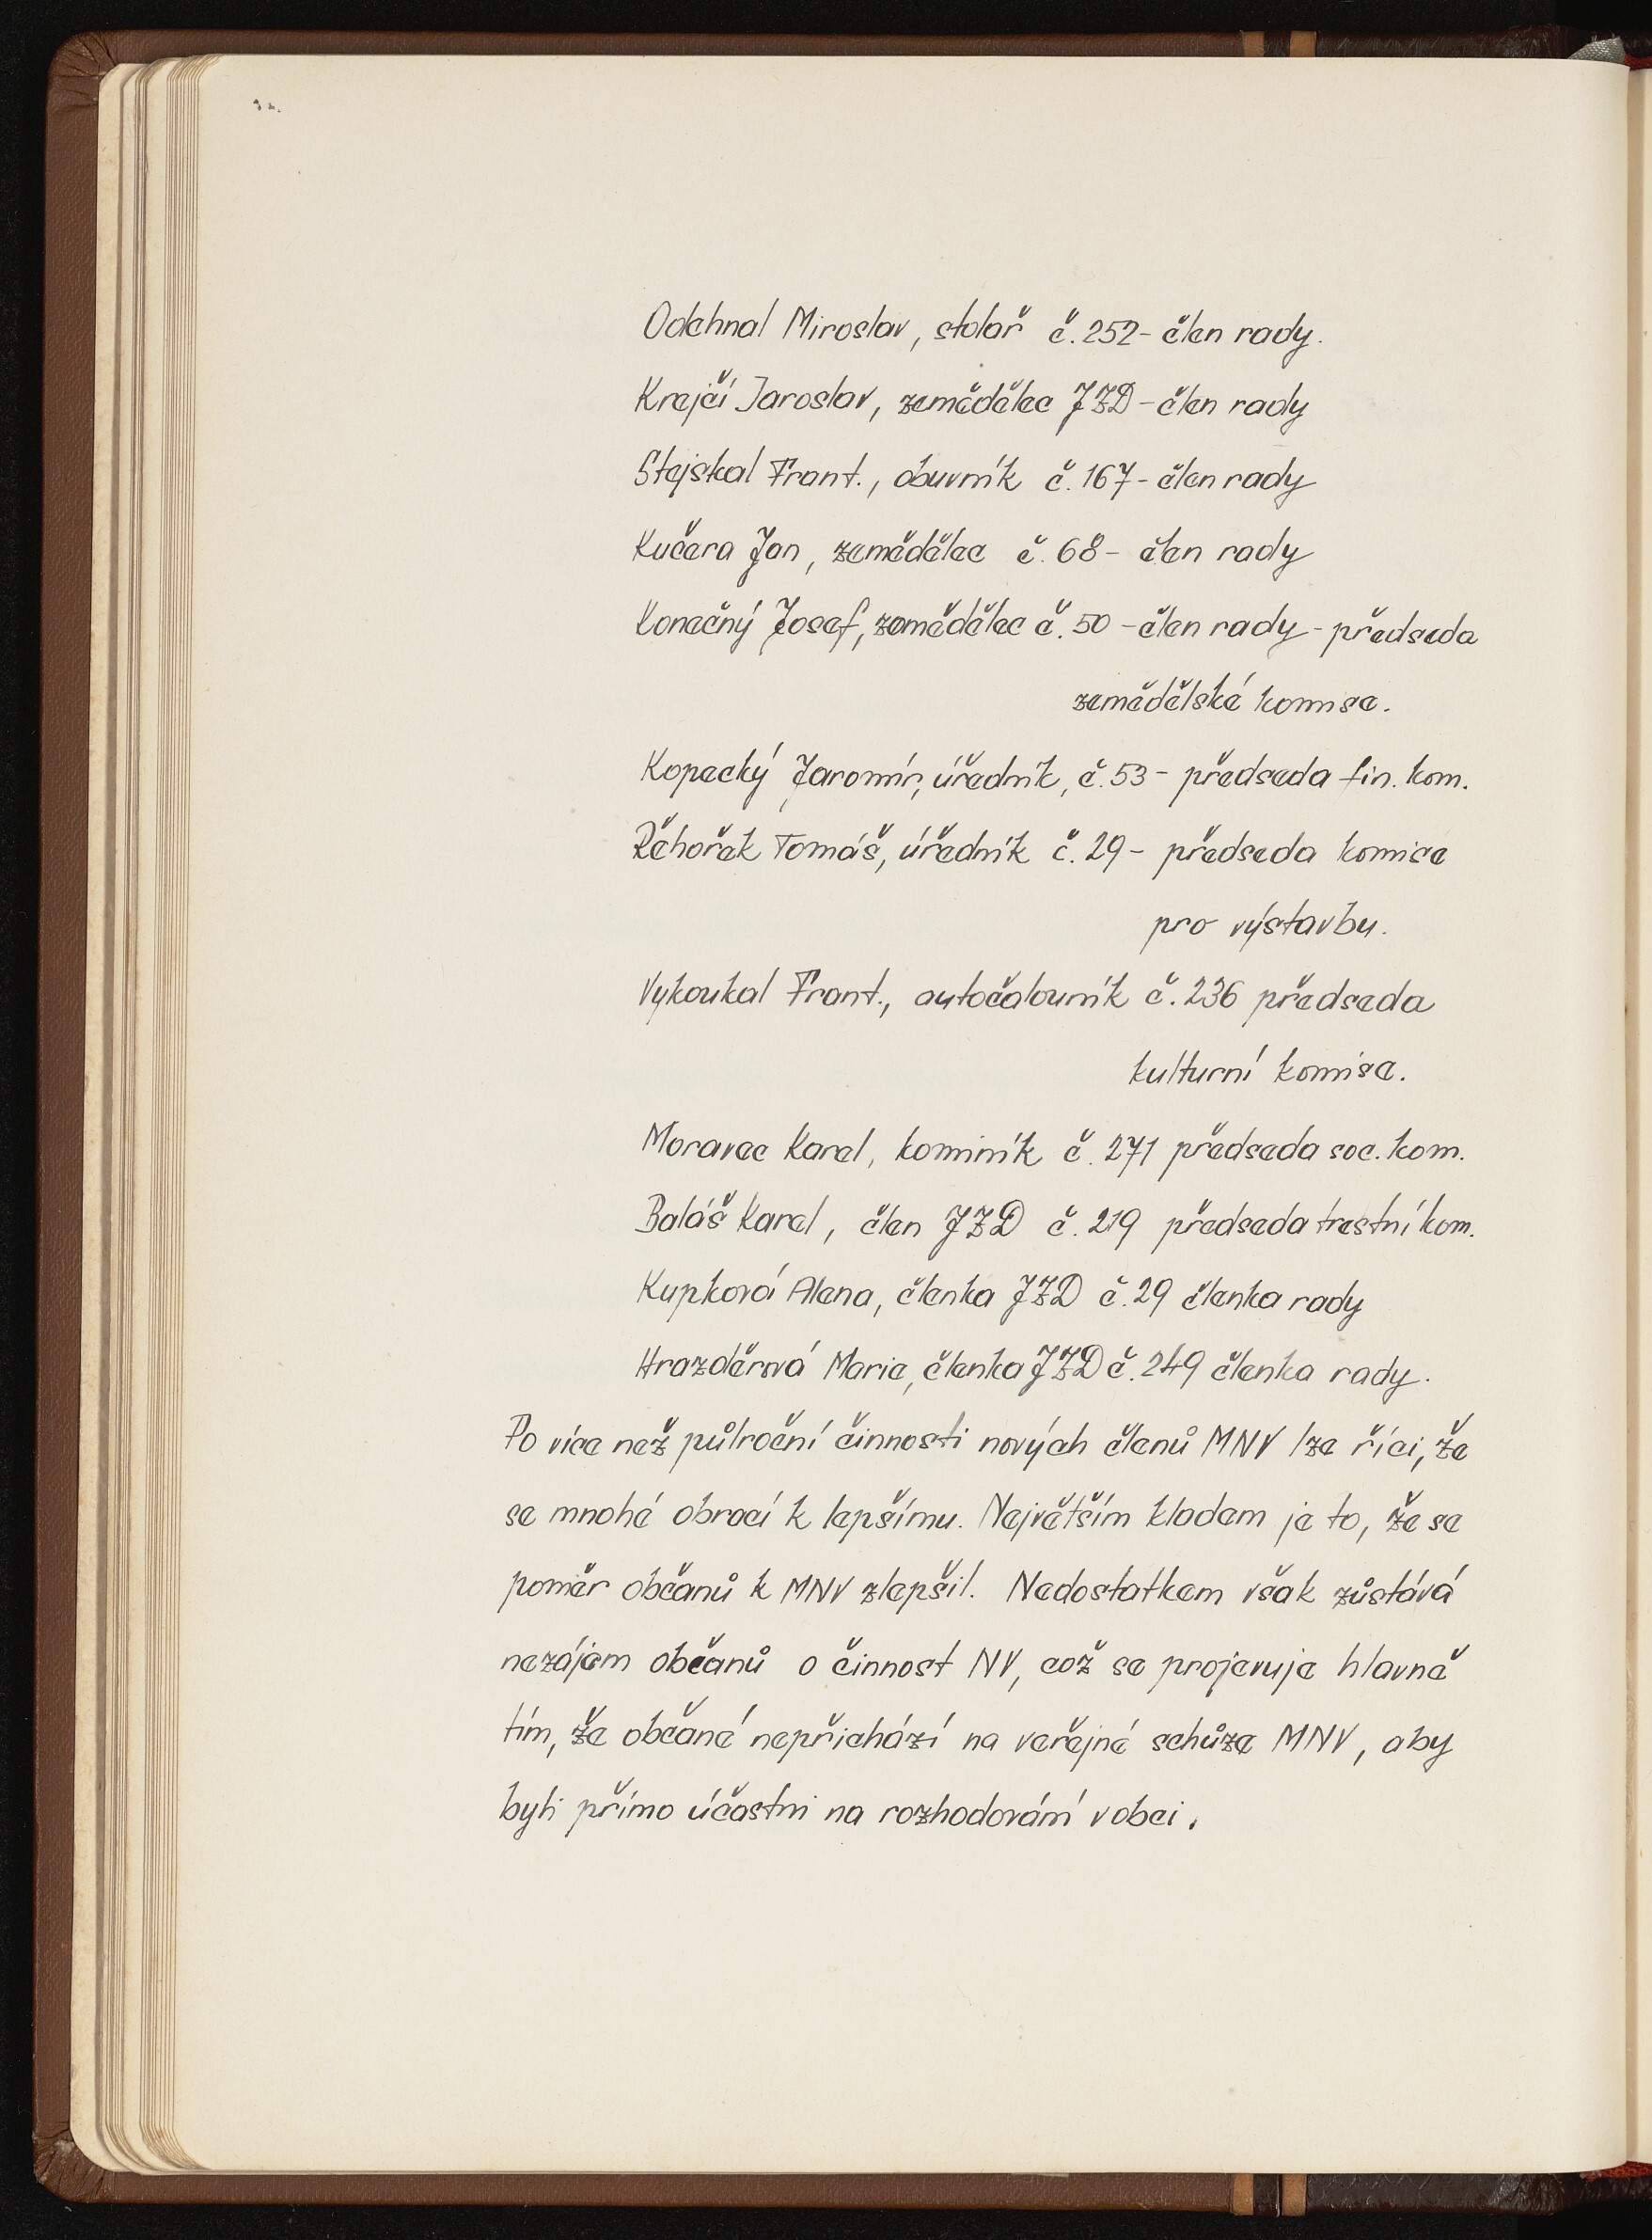 Odehnal Miroslav, stolař č. 252 - člen rady.
Krejčí Jaroslav, zemědělec JZD - člen rady
Stejskal Frant., obuvník č. 167 - člen rady
Kučera Jan, zemědělec č. 68 - člen rady
Konečný Josef, zemědělec č. 50 - člen rady - předseda
zemědělské komise.
Kopecký Jaromír, úředník, č. 53 - předseda fin. kom.
Řehořek Tomáš, úředník č. 29 - předseda komise
pro výstavbu.
Vykoukal Frant., autočalouník č. 236 předseda
kulturní komise.
Moravec Karel, kominík č. 271 předseda soc. kom.
Baláš Karel, člen JZD č. 219 předseda trestní kom.
Kupková Alena, členka JZD č. 29 členka rady
Hrazděrová Marie, členka JZD č. 249 členka rady.
Po více než půlroční činnosti nových členů MNV lze říci, že
se mnohé obrací k lepšímu. Největším kladem je to, že se
poměr občanů k MNV zlepšil. Nedostatkem však zůstává
nezájem občanů o činnost NV, což se projevuje hlavně
tím, že občané nepřichází na veřejné schůze MNV, aby
byli přímo účastni na rozhodování v obci.